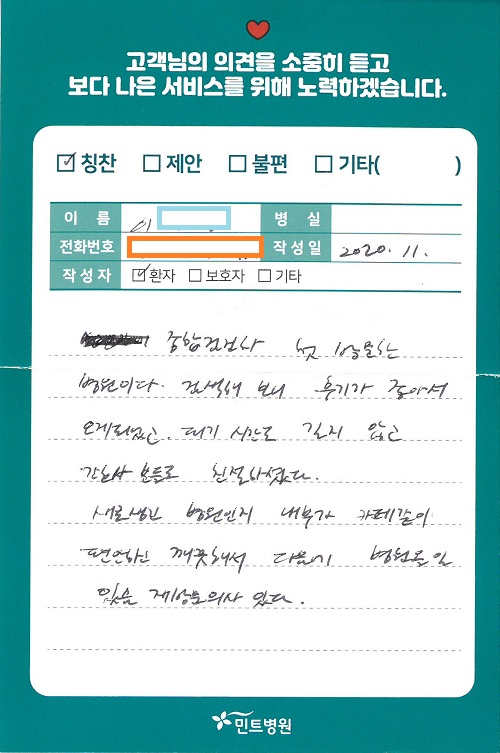 고객님의 의견을 소중히 듣고
보다 나은 서비스를 위해 노력하겠습니다.
☑ 칭찬 ☐ 제안 ☐ 불편 ☐ 기타( )
이 름 이 병 실
전화번호 작성일 2020. 11.
작성자 ☑ 환자 ☐ 보호자 ☐ 기타
종합검진차 첫 방문하는
병원이다. 검색해 보니 후기가 좋아서
오게되었고. 대기 시간도 길지 않고
간호사 분들도 친절하셨다.
새로생긴 병원인지 내부가 카페같이
편안하고 깨끗해서 다음에 병원올일
있음 재방문의사 있다.
민트병원